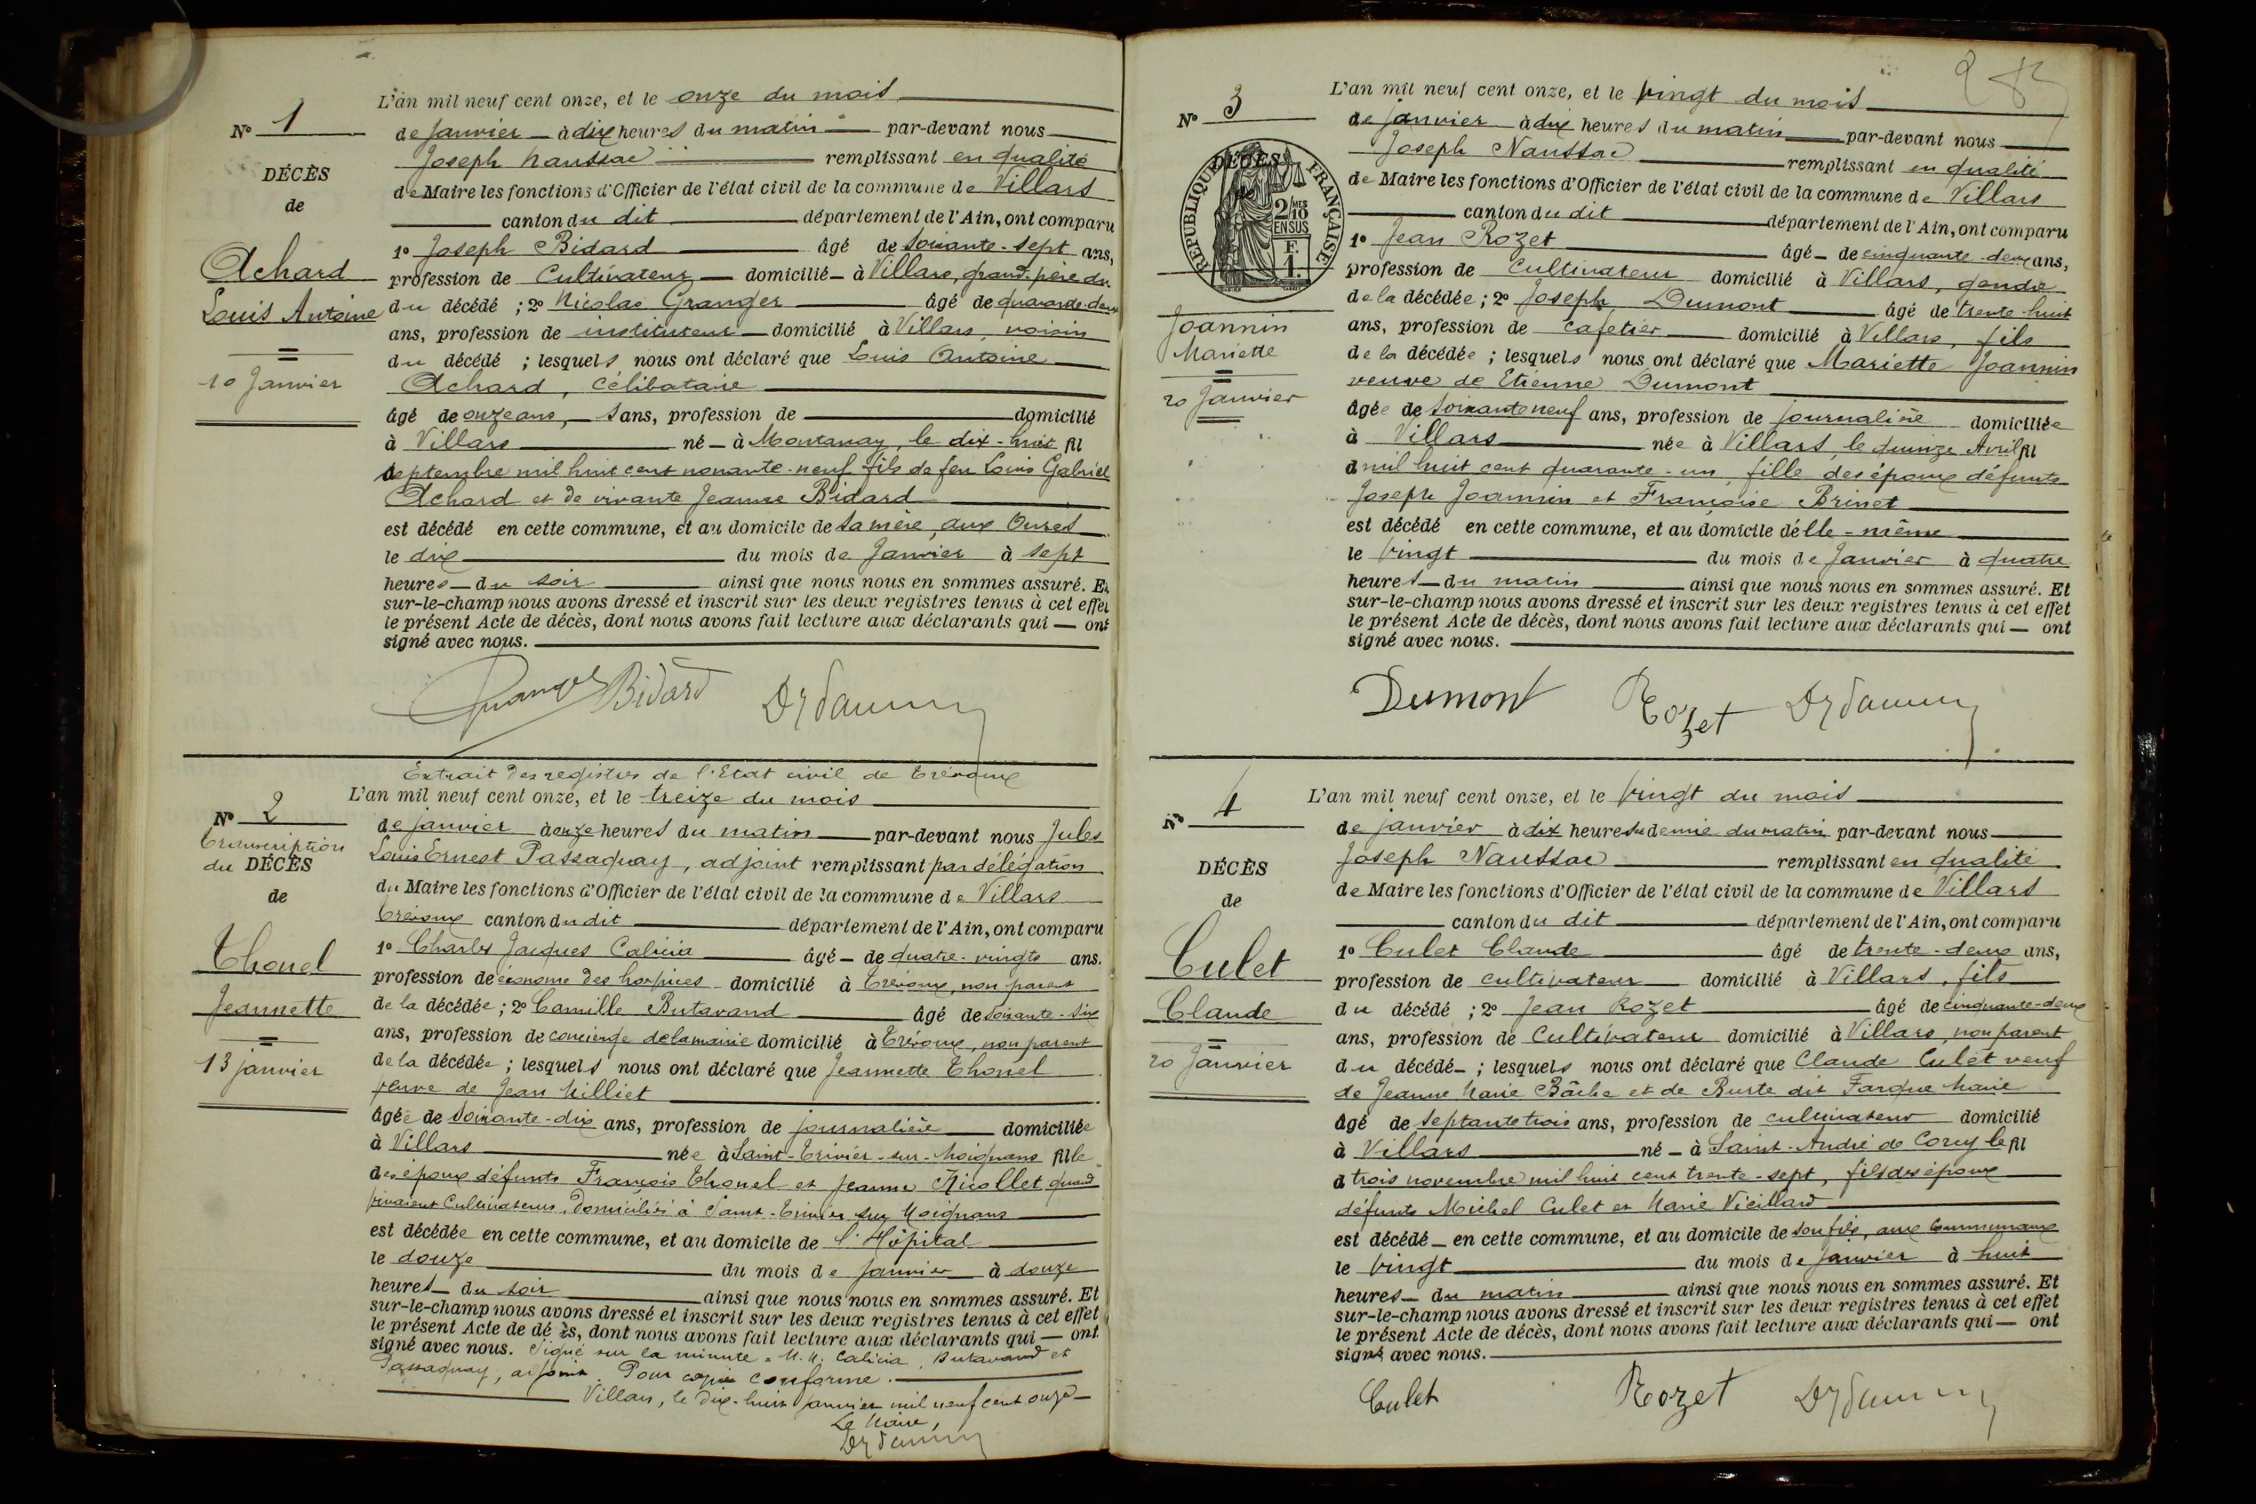 N° 1
DÉCÈS
de
Achard
Louis Antoine
10 Janvier
L'an mil neuf cent onze, et le onze du mois
de Janvier à dix heures du matin par-devant nous
Joseph Naussac remplissant en qualité
de Maire les fonctions d'Officier de l'état civil de la commune de Villars
canton du dit département de l'Ain, ont comparu
1° Joseph Bidard âgé de soixante-sept ans,
profession de Cultivateur domicilié à Villars, grand-père du
du décédé ; 2° Nicolas Granger âgé de quarante-deux
ans, profession de instituteur domicilié à Villars, voisin
du décédé ; lesquels nous ont déclaré que Louis Antoine
Achard, célibataire
âgé de onze ans, sans, profession de domicilié
à Villars né à Montanay, le dix-huit fil
septembre mil huit cent nonante-neuf fils de feu Louis Gabriel
Achard et de vivante Jeanne Bidard
est décédé en cette commune, et au domicile de sa mère, aux
le dix du mois de Janvier à sept
heures du soir ainsi que nous nous en sommes assuré. Et
sur-le-champ nous avons dressé et inscrit sur les deux registres tenus à cet effet
le présent Acte de décès, dont nous avons fait lecture aux déclarants qui ont
signé avec nous.
Granger Bidard
Extrait des registres de l'Etat civil de Trévoux
N° 2
Transcription
du DÉCÈS
de
Thonel
Jeannette
13 janvier
L'an mil neuf cent onze, et le treize du mois
de janvier à onze heures du matin par-devant nous Jules
Louis Ernest Passaquay, adjoint remplissant par délégation
du Maire les fonctions d'Officier de l'état civil de la commune de Villars
Trévoux canton du dit département de l'Ain, ont comparu
1° Charles Jacques Calicia âgé de quatre-vingts ans.
profession de économe des hospices domicilié à Trévoux, non parent
de la décédée ; 2° Camille Butavand âgé de soixante-six
ans, profession de concierge de la mairie domicilié à Trévoux, non parent
de la décédée ; lesquels nous ont déclaré que Jeannette Thonel
veuve de Jean Milliet
âgée de soixante-dix ans, profession de journalière domiciliée
à Villars née à Saint-Trivier-sur-Moignans fille
des époux défunts François Thonel et Jeanne Nicollet quand
vivaient Cultivateurs, domiciliés à Saint-Trivier sur Moignans
est décédée en cette commune, et au domicile de l'Hôpital
le douze du mois de Janvier à douze
heures du soir ainsi que nous nous en sommes assuré. Et
sur-le-champ nous avons dressé et inscrit sur les deux registres tenus à cet effet
le présent Acte de décès, dont nous avons fait lecture aux déclarants qui ont
signé avec nous. Signé sur la minute = M.M. Calicia, Butavand et
Passaquay, adjoint. Pour copie conforme.
Villars, le dix-huit janvier mil neuf cent onze
Le Maire,
N° 3
DÉCÈS
de
RÉPUBLIQUE FRANÇAISE
2/10 MES
EN SUS
F.
1.
Joannin
Mariette
20 Janvier
L'an mil neuf cent onze, et le vingt du mois
de janvier à dix heures du matin par-devant nous
Joseph Naussac remplissant en qualité
de Maire les fonctions d'Officier de l'état civil de la commune de Villars
canton du dit département de l'Ain, ont comparu
1° Jean Rozet âgé de cinquante-deux ans,
profession de Cultivateur domicilié à Villars, gendre
de la décédée ; 2° Joseph Dumont âgé de trente huit
ans, profession de cafetier domicilié à Villars, fils
de la décédée ; lesquels nous ont déclaré que Mariette Joannin
veuve de Etienne Dumont
âgée de soixante neuf ans, profession de journalière domiciliée
à Villars née à Villars, le quinze Avril fil
d mil huit cent quarante-un, fille des époux défunts
Joseph Joannin et Françoise Brinet
est décédé en cette commune, et au domicile d'elle-même
le vingt du mois de Janvier à quatre
heures du matin ainsi que nous nous en sommes assuré. Et
sur-le-champ nous avons dressé et inscrit sur les deux registres tenus à cet effet
le présent Acte de décès, dont nous avons fait lecture aux déclarants qui ont
signé avec nous.
Dumont Rozet
N° 4
DÉCÈS
de
Culet
Claude
20 Janvier
L'an mil neuf cent onze, et le vingt du mois
de janvier à dix heures et demie du matin par-devant nous
Joseph Naussac remplissant en qualité
de Maire les fonctions d'Officier de l'état civil de la commune de Villars
canton du dit département de l'Ain, ont comparu
1° Culet Claude âgé de trente-deux ans,
profession de cultivateur domicilié à Villars, fils
du décédé ; 2° Jean Rozet âgé de cinquante-deux
ans, profession de Cultivateur domicilié à Villars, non parent
du décédé ; lesquels nous ont déclaré que Claude Culet veuf
de Jeanne Marie Bâche et de Buste dit Farque Marie
âgé de septante trois ans, profession de cultivateur domicilié
à Villars né à Saint-André de Corcy le fil
d trois novembre mil huit cent trente-sept, fils des époux
défunts Michel Culet et Marie Vieillard
est décédé en cette commune, et au domicile de son fils, aux Communaux
le vingt du mois de janvier à huit
heures du matin ainsi que nous nous en sommes assuré. Et
sur-le-champ nous avons dressé et inscrit sur les deux registres tenus à cet effet
le présent Acte de décès, dont nous avons fait lecture aux déclarants qui ont
signé avec nous.
Culet Rozet